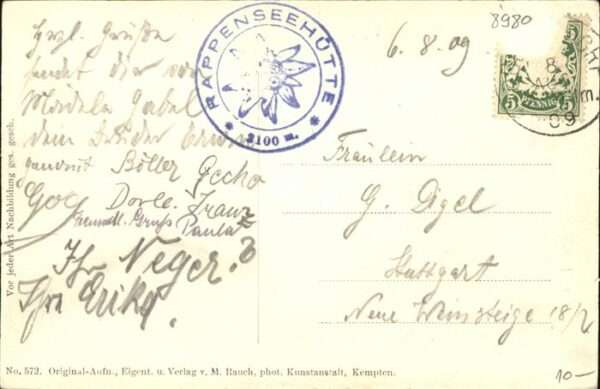 8980
6.8.09
RAPPENSEEHÜTTE
* 2100 m. *
5 PFENNIG 5
8
09
Herzl. Grüße
sendet dir von
Mädele Gabel
dein Bruder
Böller Gecko
Dorle. Franz
Freundl. Gruß Paula
Ihr Neger.
Ihr Erika.
Fräulein
G. Digel
Stuttgart
Neue Weinsteige 18/2
Vor jeder Art Nachbildung ges. gesch.
No. 572. Original-Aufn., Eigent. u. Verlag v. M. Rauch, phot. Kunstanstalt, Kempten.
10—